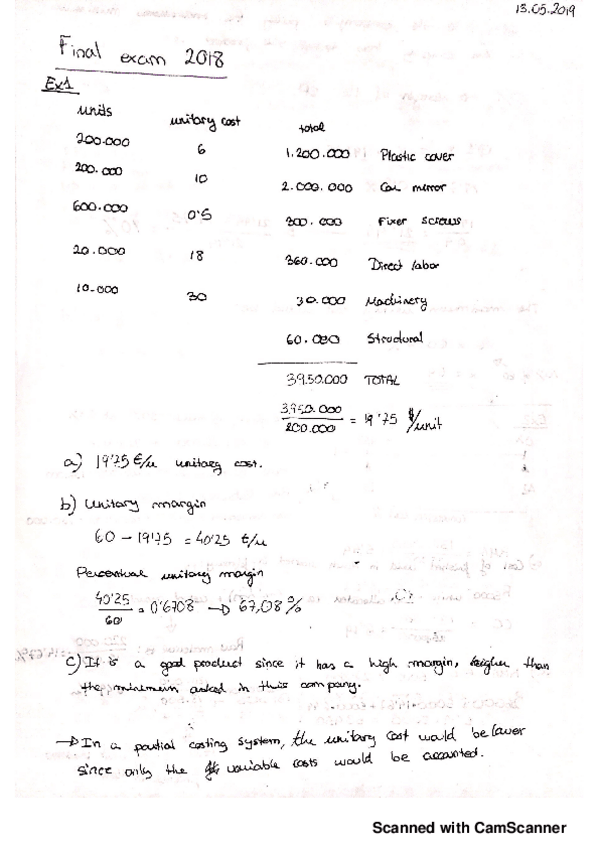 13.05.2019
Final exam 2018
Ex1
units unitary cost total
200.000 6 1.200.000 Plastic cover
200.000 10 2.000.000 Car mirror
600.000 0'5 300.000 Fixer screws
20.000 18 360.000 Direct labor
10.000 30 30.000 Machinery
60.000 Structural
3950.000 TOTAL
3.950.000 / 200.000 = 19'75 $/unit
a) 19'75 €/u unitary cost.
b) Unitary margin
60 - 19'75 = 40'25 €/u
Percentual unitary margin
40'25 / 60 = 0'6708 → 67,08%
C) It is a good product since it has a high margin, heigher than
the minimum asked in this company.
→ In a partial costing system, the unitary cost would be lower
since only the variable costs would be accounted.
Scanned with CamScanner